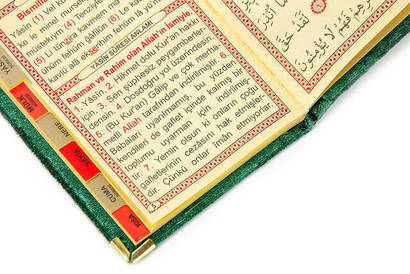 Yâsîn (1) Vel kur
ke le minel mürselîn
müstekıym (4) Tenziyle
(5) Li tünzira kavmem
kavlü alâ ekserihim fehüm lâ
YÂSÎN SÛRESİ ANLAMI
Rahman ve Rahim olan Allah'ın İsmiyle.
1. Yâsîn. 2. Hikmet dolu Kur'an hakkı
için, 3. Sen şüphesiz peygamberler-
densin. 4. Dosdoğru yol üzerindesin.
5. (Bu Kur'an) Galip ve çok merha-
metli Allah tarafından indirilmiştir. 6.
Babaları uyarılmamış, bu yüzden
kendileri de gaflet içinde kalmış bir
toplumu uyarman için indirilmiştir.
7. Yemin olsun ki onların çoğu
gafletlerinin cezasını hak etmişler-
dir. Çünkü onlar îmân etmiyorlar
5
YÂSİN
MÜLK
NEBE
VAKIA
CUMA
KISA
لَقَدْ حَقَّ
فَهُمْ لَا يُؤْمِنُونَ